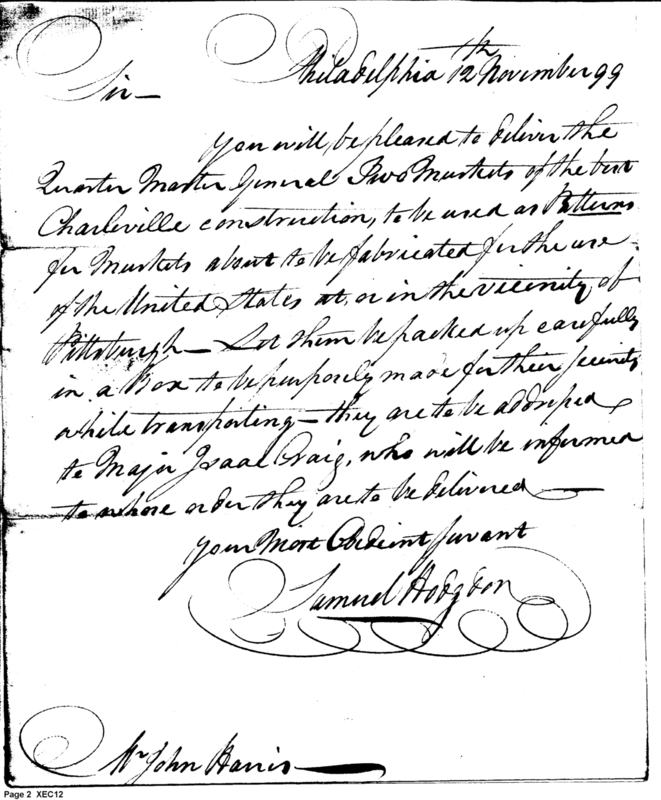 Philadelphia 12th November 99
Sir—
You will be pleased to deliver the
Quarter Master General Two Muskets of the best
Charleville construction, to be used as Patterns
for Muskets about to be fabricated for the use
of the United States at, or in the vicinity of
Pittsburgh— Let them be packed up carefully
in a Box to be purposely made for their security
while transporting— they are to be addressed
to Major Isaac Craig, who will be informed
to whose order they are to be delivered—
Your Most Obedient Servant
Samuel Hodgdon
Mr John Harris
Page 2 XEC12